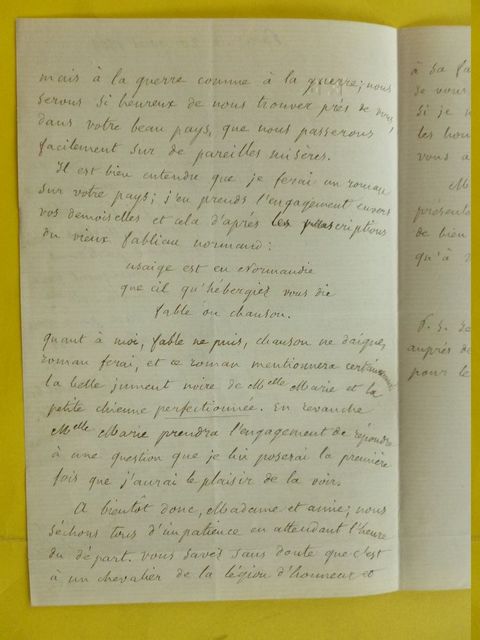 mais à la guerre comme à la guerre; nous
serons si heureux de nous trouver près de vous,
dans votre beau pays, que nous passerons
facilement sur de pareilles misères.
Il est bien entendu que je ferai un roman
sur votre pays; j'en prends l'engagement envers
vos demoiselles et cela d'après les prescriptions
du vieux fabliau normand:
usaige est en Normandie
que cil qu'hébergiez vous die
fable ou chanson.
quant à moi, fable ne puis, chanson ne daigne,
roman ferai, et ce roman mentionnera certainement
la belle jument noire de Melle Marie et la
petite chienne perfectionnée. En revanche
Melle Marie prendra l'engagement de répondre
à une question que je lui poserai la première
fois que j'aurai le plaisir de la voir.
A bientôt donc, Madame et amie; nous
séchons tous d'impatience en attendant l'heure
du départ. vous savez sans doute que c'est
à un chevalier de la légion d'honneur et
à sa fa
se vous
Si je n
les hou
vous a
présente
de bien
qu'à
P. S. Je
auprès de
pour le